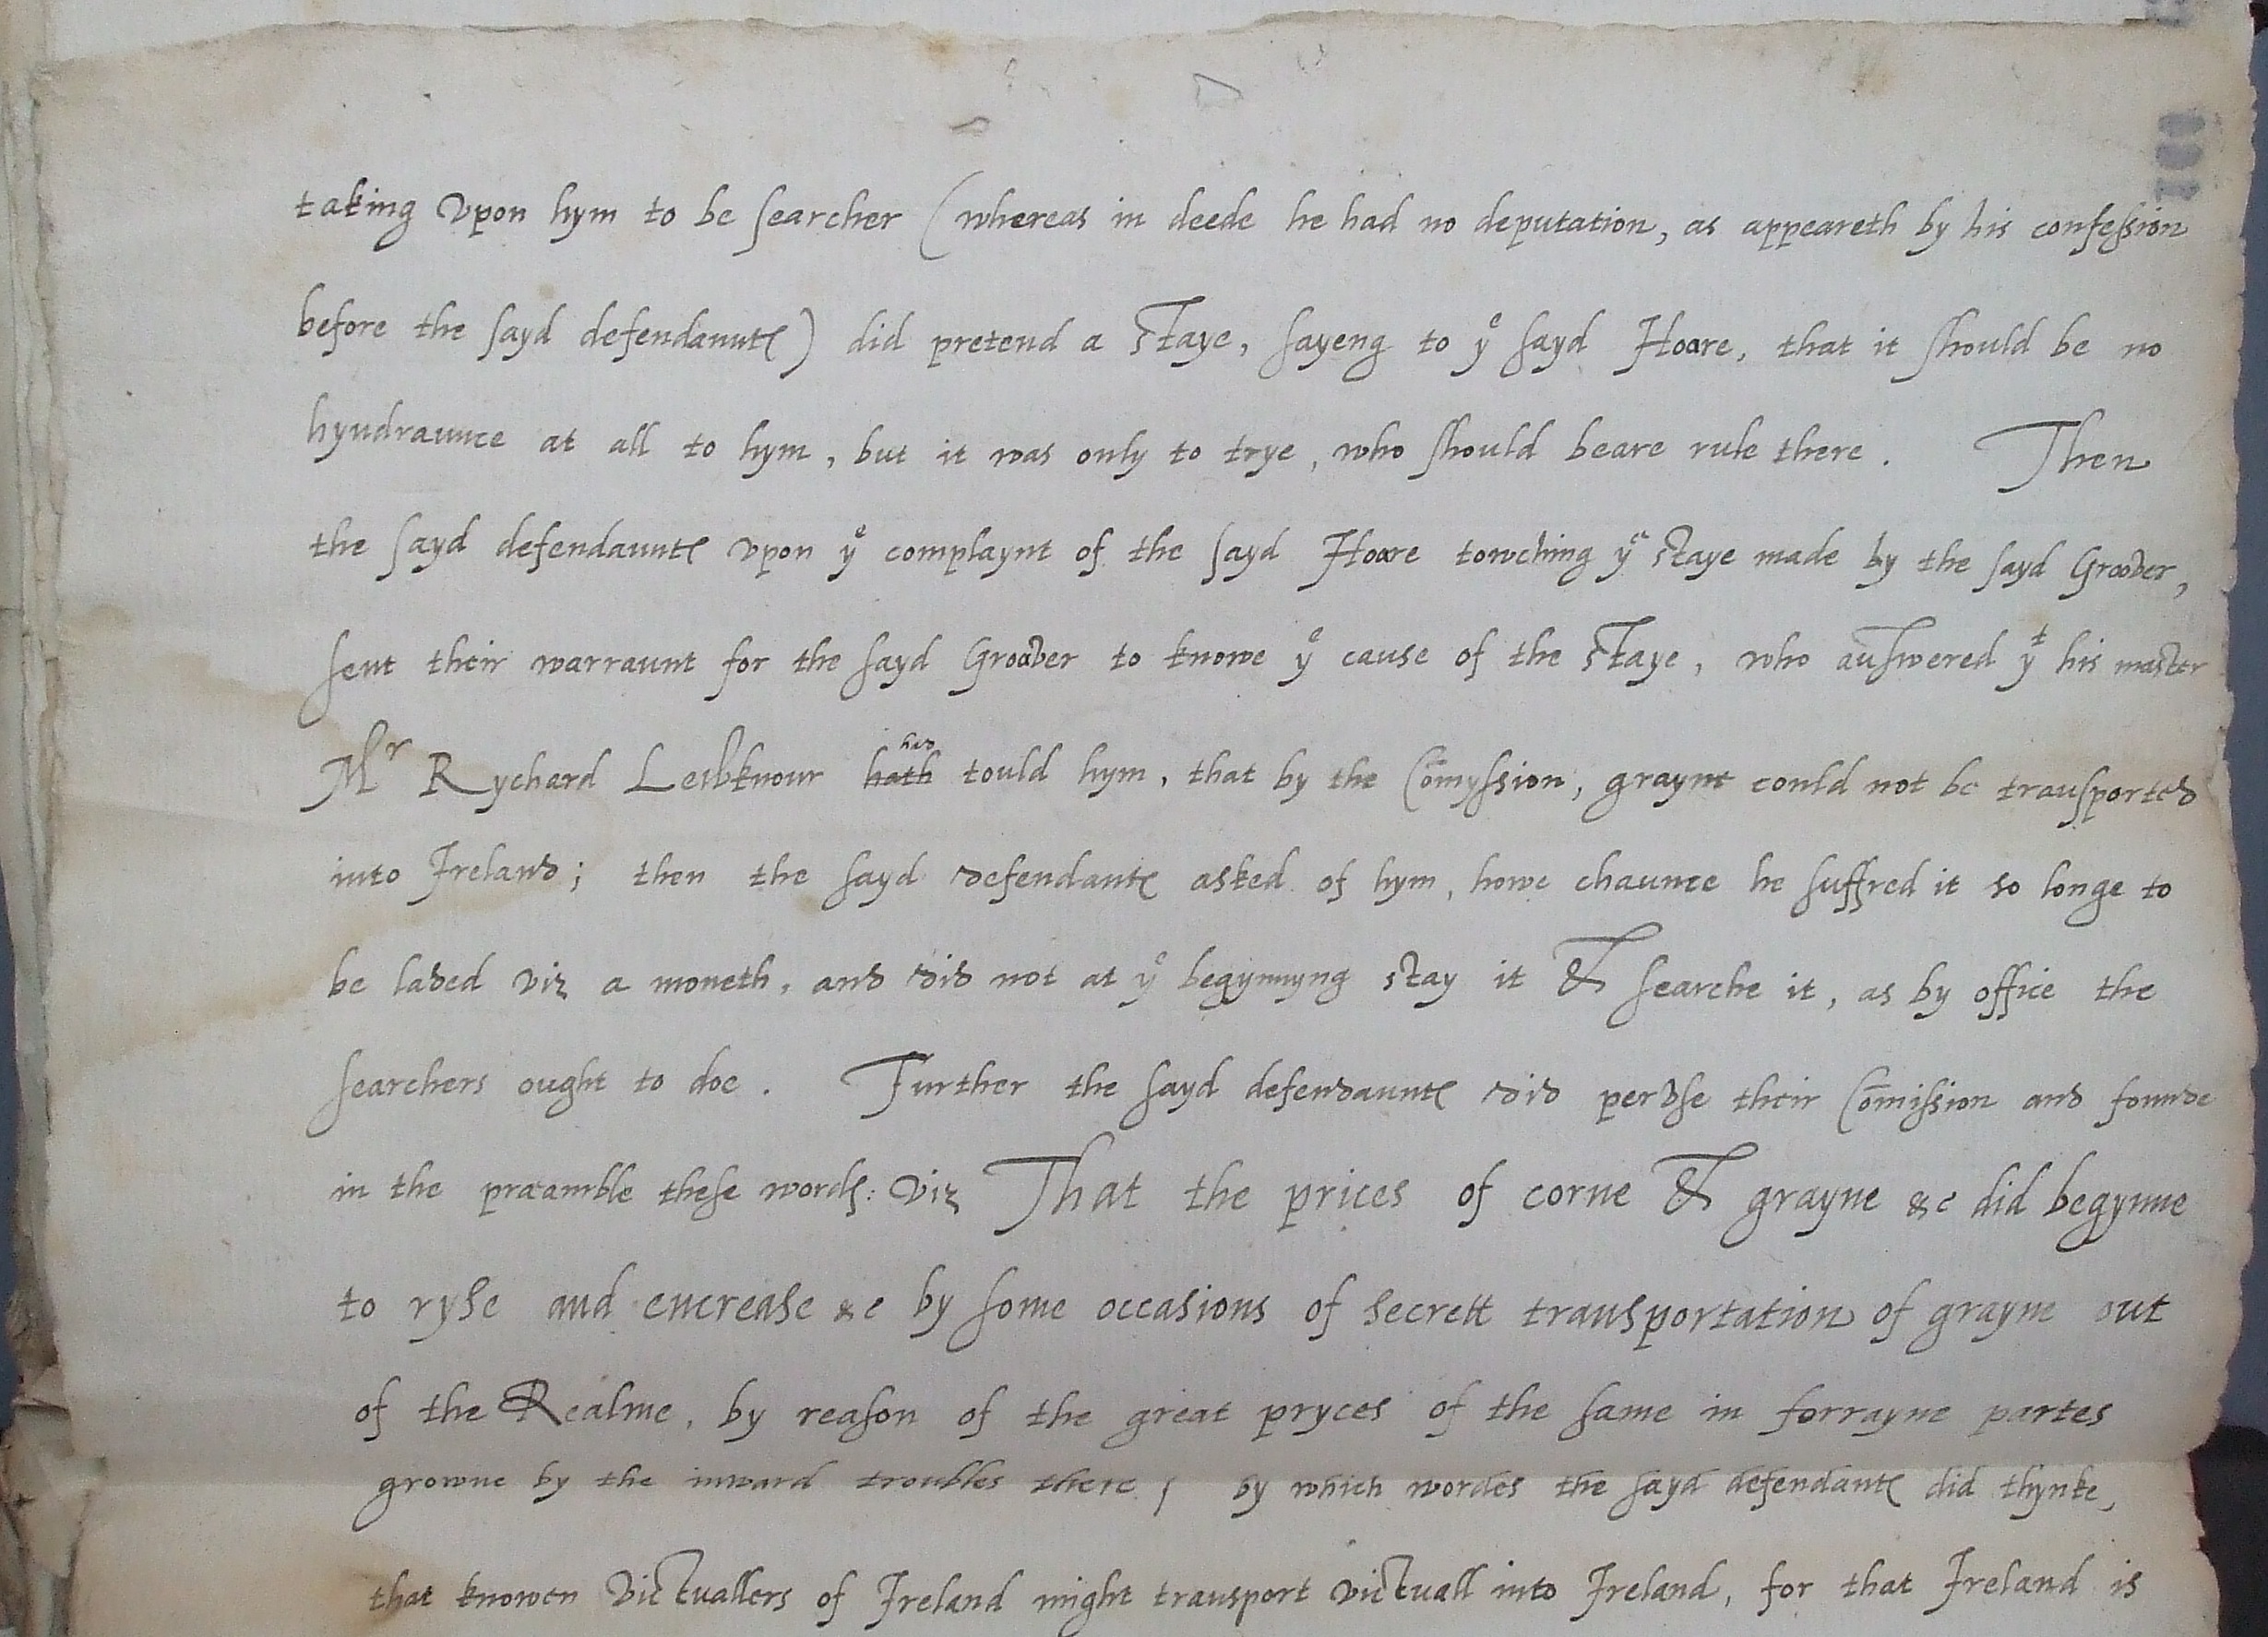 taking vpon hym to be searcher (whereas in deede he had no deputation, as appeareth by his confession
before the sayd defendauntes) did pretend a staye, sayeng to yᵉ sayd Hoare, that it should be no
hyndraunce at all to hym, but it was only to trye, who should beare rule there. Then
the sayd defendauntes vpon yᵉ complaynt of the sayd Hoare towching yᵉ staye made by the sayd Groover,
sent their warraunt for the sayd Groover to knowe yᵉ cause of the staye, who aunswered yᵗ his master
Mʳ Rychard Lewknour hath had tould hym, that by the Comyssion, grayne could not be transported
into Ireland; then the sayd defendantes asked of hym, howe chaunce he suffred it so longe to
be laded viz a moneth, and did not at yᵉ begynnyng stay it & searche it, as by office the
searchers ought to doe. Further the sayd defendauntes did pervse their Comission and founde
in the præamble these wordes: viz That the prices of corne & grayne &c did begynne
to ryse and encrease &c by some occasions of secrett transportation of grayne out
of the Realme, by reason of the great pryces of the same in forrayne partes
growne by the inward troubles there; by which wordes the sayd defendantes did thynke,
that knowen victuallers of Ireland might transport victuall into Ireland, for that Ireland is